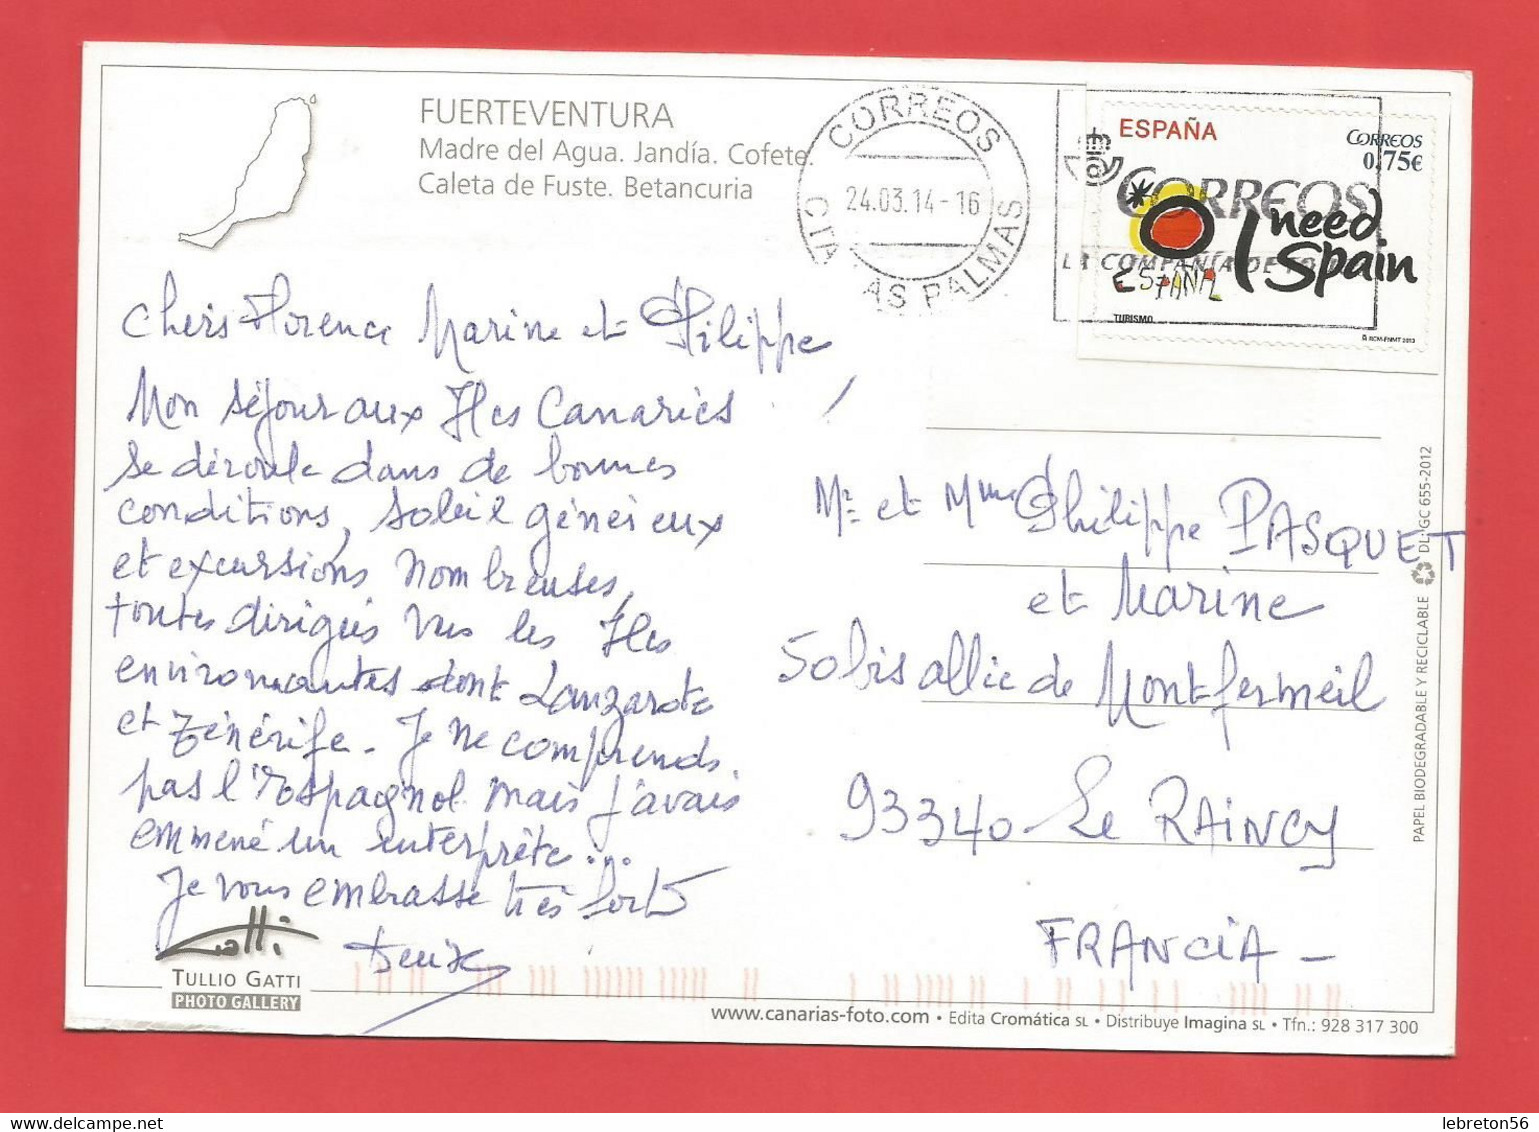 FUERTEVENTURA
Madre del Agua. Jandía. Cofete.
Caleta de Fuste. Betancuria
CORREOS
24.03.14-16
CTA LAS PALMAS
ESPAÑA
CORREOS
0,75€
CORREOS
LA COMPAÑÍA DE TO
I need Spain
ESPAÑA
TURISMO
© RCM-FNMT 2013
Chers Florence Marine et Philippe
!
Mon séjour aux Iles Canaries
se déroule dans de bonnes
conditions, soleil généreux
et excursions nombreuses,
toutes dirigées vers les Iles
environnantes dont Lanzarote
et Ténérife. Je ne comprends
pas l'Espagnol mais j'avais
emmené un interprète...
Je vous embrasse très fort
Mr et Mme Philippe PASQUET
et Marine
50bis allée de Montfermeil
93340 Le RAINCY
FRANCIA -
Gatti
TULLIO GATTI
PHOTO GALLERY
www.canarias-foto.com • Edita Cromática SL • Distribuye Imagina SL • Tfn.: 928 317 300
PAPEL BIODEGRADABLE Y RECICLABLE DL: GC 655-2012
lebreton56